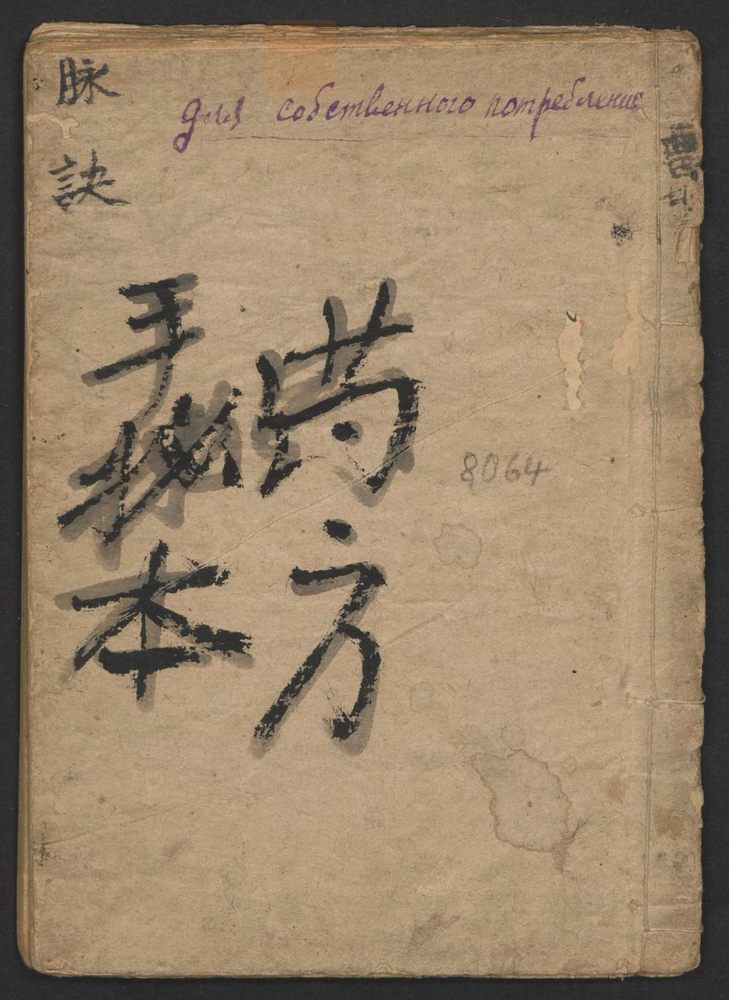 для собственного потребление
脉訣
药方
手抄本
8064